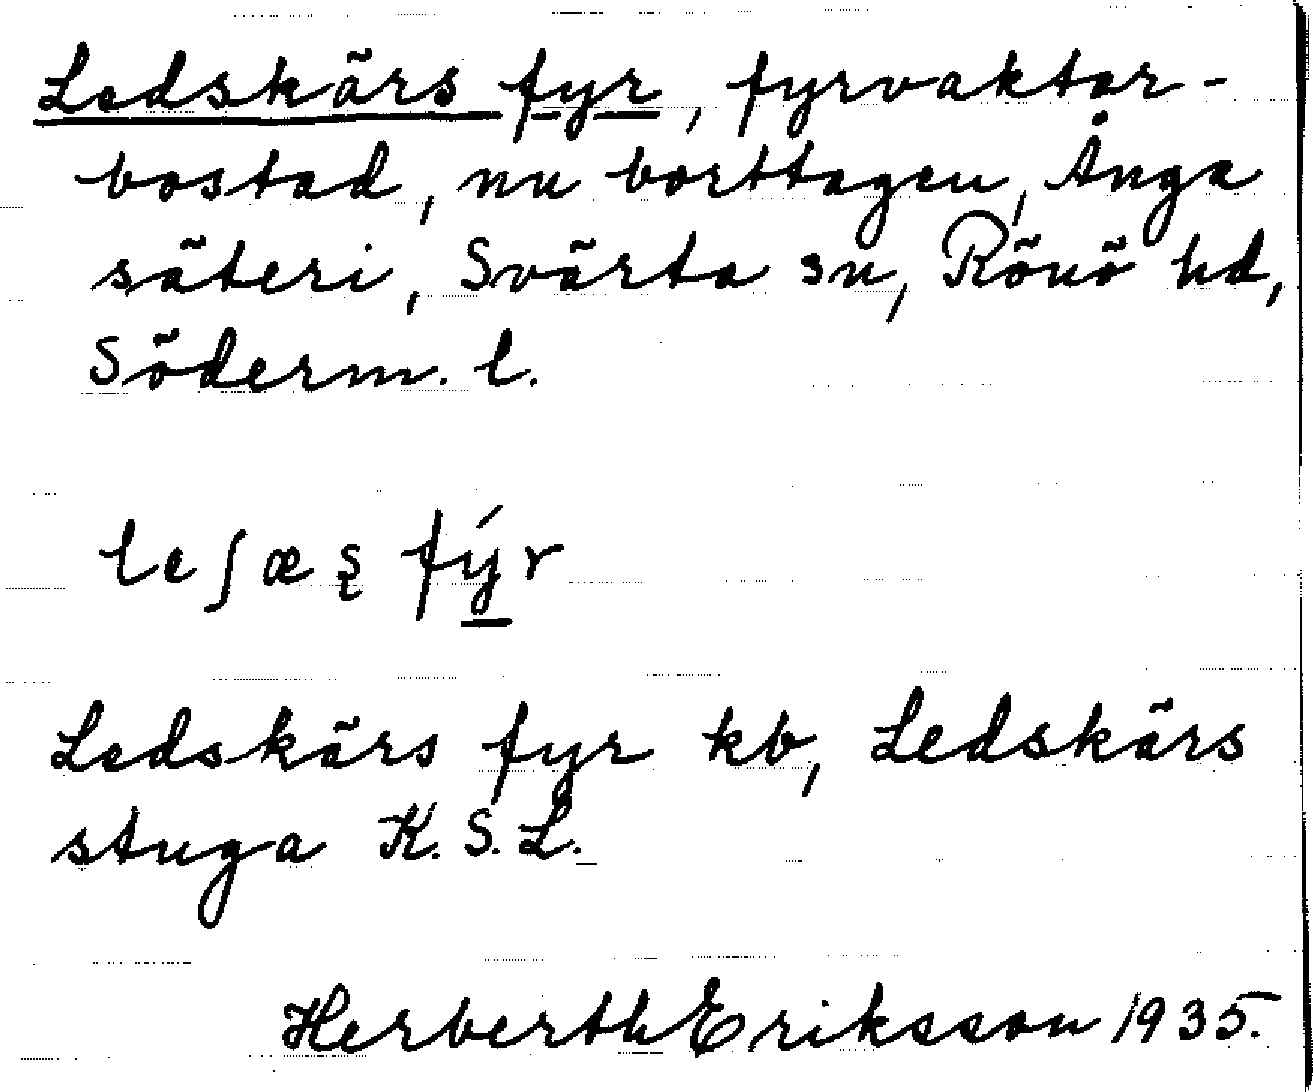 Ledskärs fyr, fyrvaktar-
bostad, nu borttagen, Ånga
säteri, Svärta sn, Rönö hd,
Söderm. l.
le ʃ æ ʂ fýr
Ledskärs fyr kb, Ledskärs
stuga K. S. L.
Herberth Eriksson 1935.